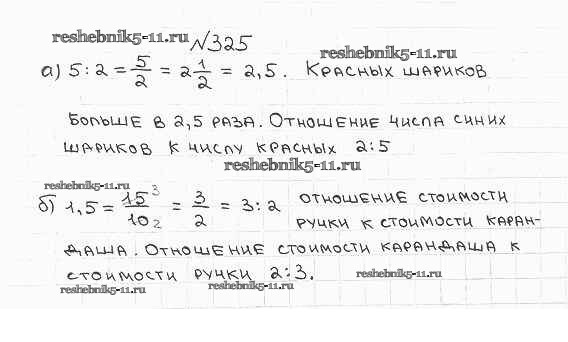 reshebnik5-11.ru №325
reshebnik5-11.ru
а) 5:2 = 5/2 = 2 1/2 = 2,5. Красных шариков
больше в 2,5 раза. Отношение числа синих
шариков к числу красных 2:5
reshebnik5-11.ru
reshebnik5-11.ru
б) 1,5 = 15 3/10 2 = 3/2 = 3:2 отношение стоимости
ручки к стоимости каран-
даша. Отношение стоимости карандаша к
стоимости ручки 2:3.
reshebnik5-11.ru
reshebnik5-11.ru
reshebnik5-11.ru